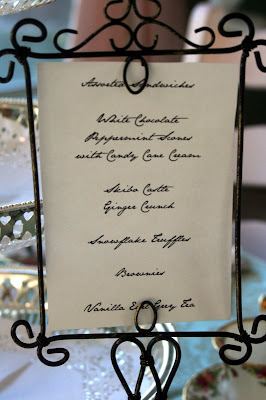 Assorted Sandwiches
White Chocolate
Peppermint Scones
with Candy Cane Cream
Skibo Castle
Ginger Crunch
Snowflake Truffles
Brownies
Vanilla Earl Grey Tea